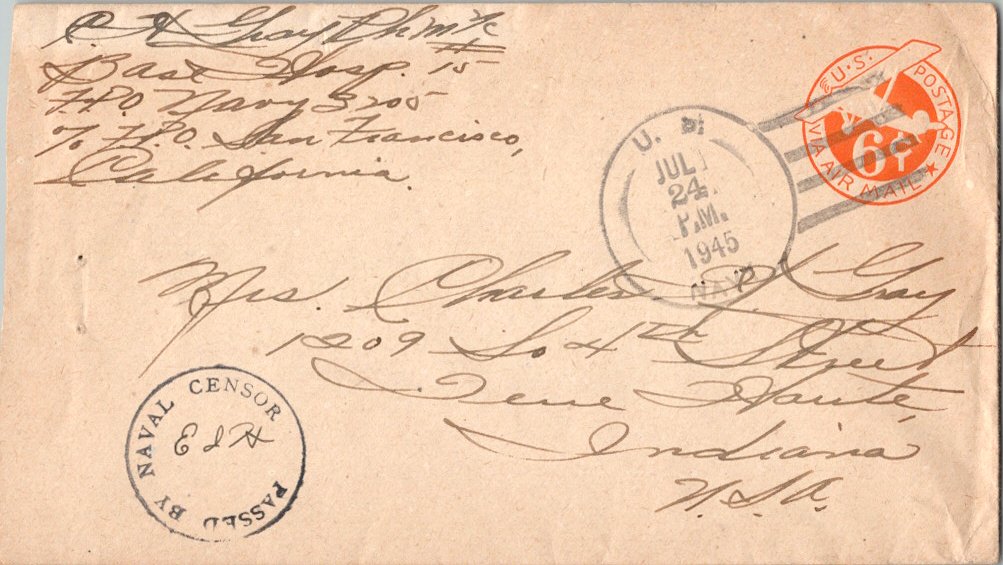 C A Gray PhM 1/c
Base Hosp. #15
F.P.O. Navy 3205
c/o F.P.O. San Francisco,
California.
U.S. POSTAGE
6¢
VIA AIR MAIL
U. S.
JUL
24
P.M.
1945
NAVY
Mrs. Charles A Gray
1209 So 4th Street
Terre Haute,
Indiana
U.S.A.
PASSED BY NAVAL CENSOR